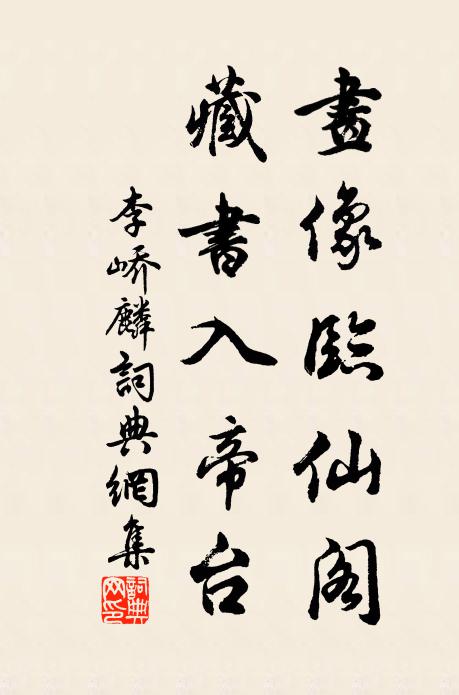 畫像臨仙阁
藏書入帝台
李峤麟詞典網集
詞典网印